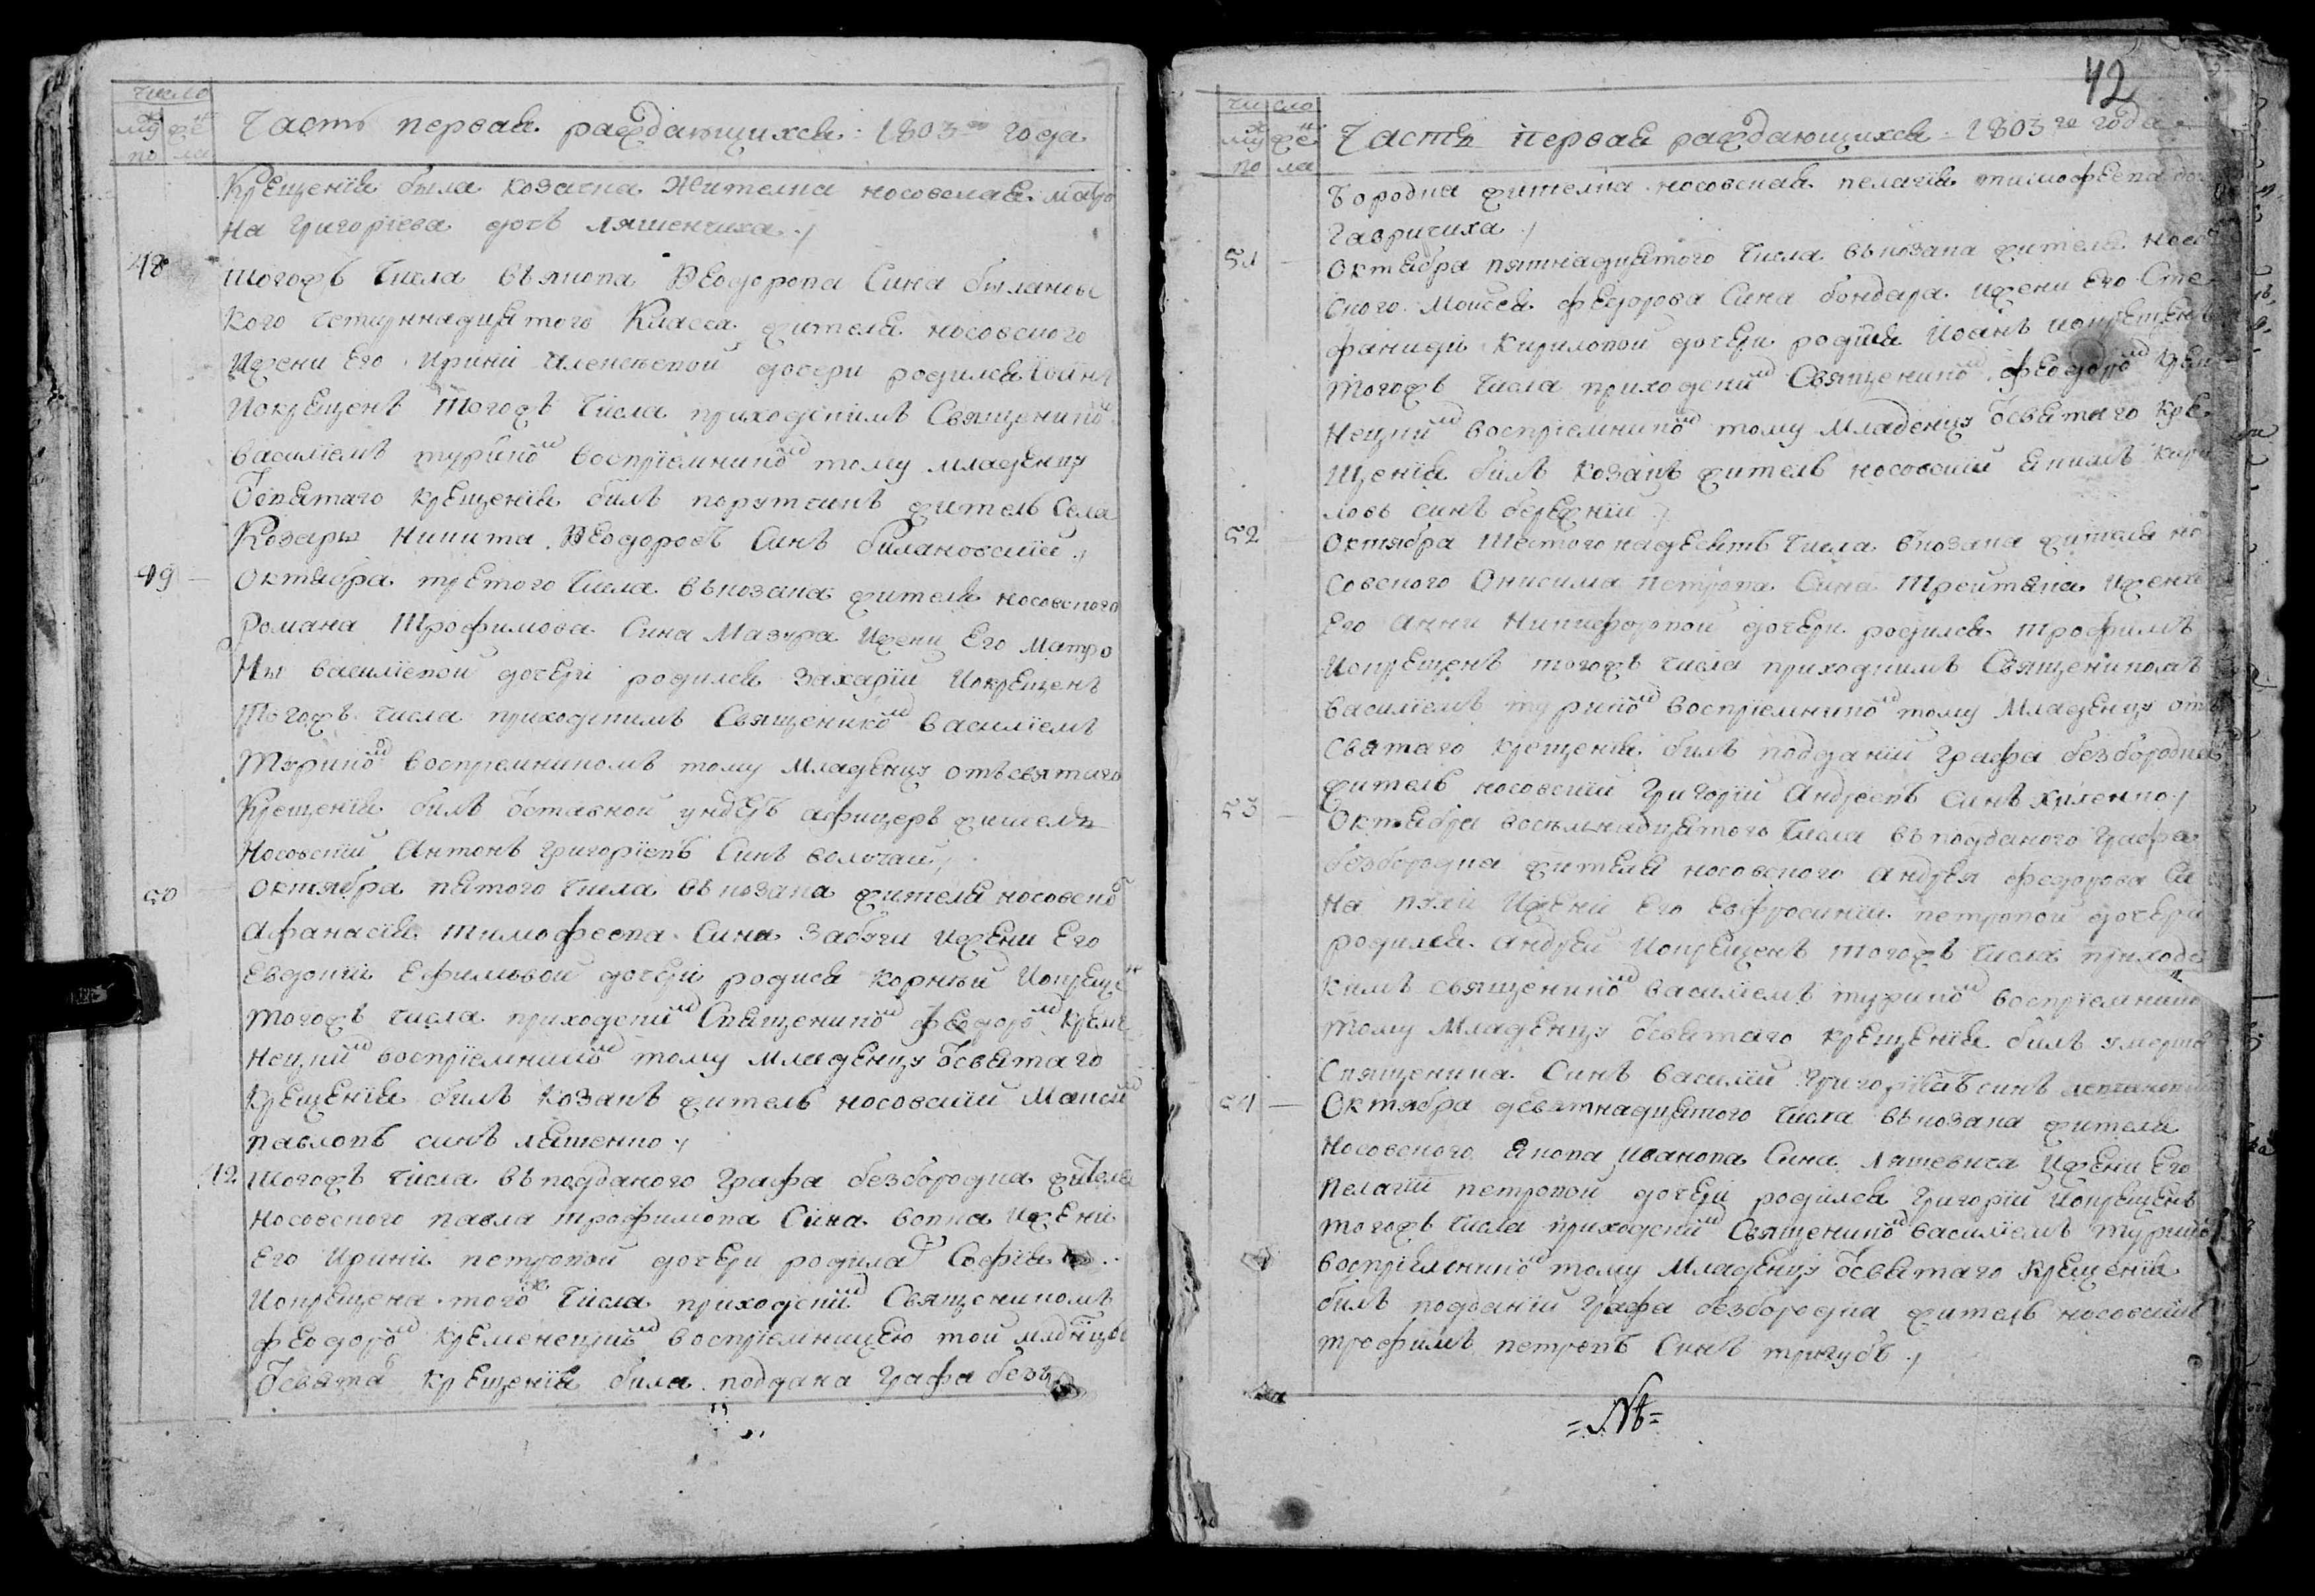 число
муж же
по ла
Часть первая раждающихся: 1803го года
Крещения была козачка Жителка носовская матро
на Григориева дочь Ляшенчиха
48
Тогожъ числа въ якова Феодорова Сина билановс
кого четирнадцятого Класса жителя носовского
Ижени Его Ирини дочери родился Иоанъ
Иокрещенъ Тогожъ числа приходскимъ Священико
василиемъ восприемнико тому младенцу
Ѿсвятаго крещения билъ порутчикъ житель Села
Козаръ Никита Феодоровъ Синъ билановский
49
Октября третого числа въ козака жителя носовского
Романа Трофимова Сина Мазура Ижени Его Матро
ны василиевой дочери родился Захарий Иокрещенъ
Тогожъ числа приходскимъ Священико василиемъ
восприемникомъ тому Младенцу отъ святаго
Крещения билъ ѿставной ундеръ афицеръ житель
Носовский Антонъ Григориевъ Синъ волочай
50
Октября пятого числа въ козака жителя носовско
Афанасия тимофеева Сина Забяги Ижени Его
Евдокии Ефимовой дочери родися корний Иокреще
тогожъ числа приходски Священико феодоро Креме
нецки восприемнико тому младенцу ѿсвятаго
Крещения билъ Козакъ житель носовский Моисей
павловъ синъ ляшенко
42
Тогожъ числа въ подданого Графа безбородка жителя
Носовского павла трофимова Сина вовка Ижени
Его Ирини петровой дочери родилась София
Иокрещена того числа приходски Священикомъ
феодоро Кременецки восприемницею той младеници
Ѿсвята крещения била поддана Графа безъ
42
число
муж же
по ла
Часть первая раждающихся 1803го года
бородка жителка носовская пелагия тимофеева доч
Гавричиха
51
Октября пятнадцятого числа въ козака жителя носов
ского Моисея федорова Сина бондаря Ижени Его Сте
фаниди Кириловой дочери родися Иоанъ иокрещенъ
тогожъ числа приходски Священико феодоро Креме
нецки восприемнико тому Младенцу ѿсвятаго Кре
щения билъ Козакъ житель носовский якимъ Кири
ловъ синъ бережний
52
Октября Шестогонадесять числа въ козака жителя но
совского Онисима петрова Сина Ижени
Его Анни Никифоровой дочери родился трофимъ
Иокрещенъ тогожъ числа приходскимъ Священикомъ
василиемъ восприемнико тому Младенцу отъ
святаго крещения билъ подданий Графа безбородка
житель носовский Григорий Андреевъ синъ хиленко
53
Октября восемнадцятого числа въ подданого Графа
безбородка жителя носовского Андрея федорова Си
на Ижени Его Евфросинии петровой дочери
родился Андрей Иокрещенъ тогожъ числа приходс
кимъ священико василиемъ восприемнико
тому Младенцу ѿсвятаго крещения билъ умерша
Священика Синъ Василий Григориевъ синъ
54
Октября девятнадцятого числа въ козака жителя
Носовского Якова Иванова Сина Ляшевича Ижени Его
Пелагии петровой дочери родился Григорий Иокрещенъ
тогожъ числа приходски Священико василиемъ
восприемнико тому Младенцу ѿсвятаго Крещения
билъ подданий Графа безбородка житель носовский
трофимъ петровъ Синъ тригубъ